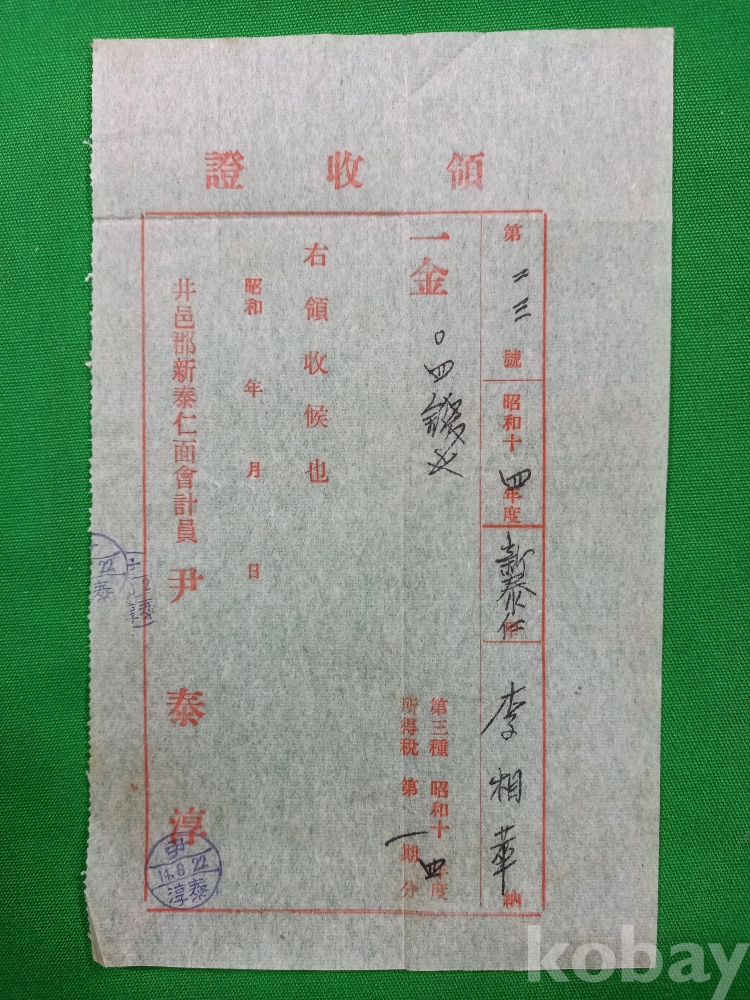 領收證
第二三號 昭和十四年度 新泰仁 李相華 納
一金 〇四錢也
第三種 昭和十四年度
所得稅 第一期分
右領收候也
昭和 年 月 日
井邑郡新泰仁面會計員 尹泰淳
尹
14.8.22
泰淳
22
泰
kobay